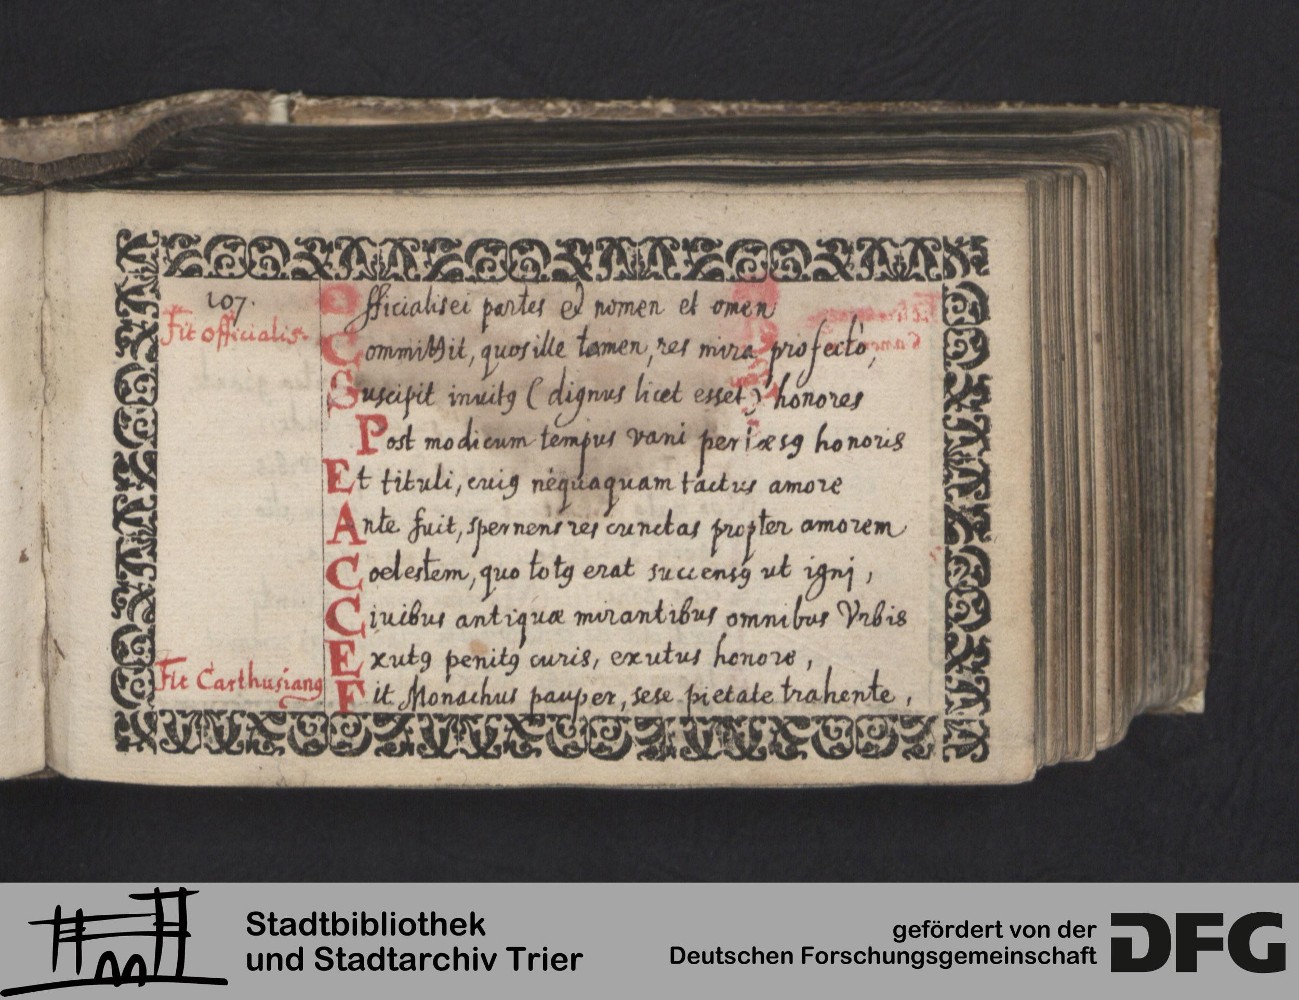 107.
Officialis ei partes et nomen et omen
Fit officialis.
Committit, quos ille tamen, res mira profectò,
Suscipit inuitꝯ (dignus licet esset) honores
Post modicum tempus vani pertæsꝯ honoris
Et tituli, cuiꝯ nequaquam tactus amore
Ante fuit, spernens res cunctas propter amorem
Coelestem, quo totꝯ erat succensꝯ ut ignj,
Ciuibus antiquæ mirantibus omnibus Vrbis
Exutꝯ penitꝯ curis, exutus honore,
Fit Carthusianꝯ
Fit Monachus pauper, sese pietate trahente,
Stadtbibliothek
und Stadtarchiv Trier
gefördert von der
Deutschen Forschungsgemeinschaft
DFG